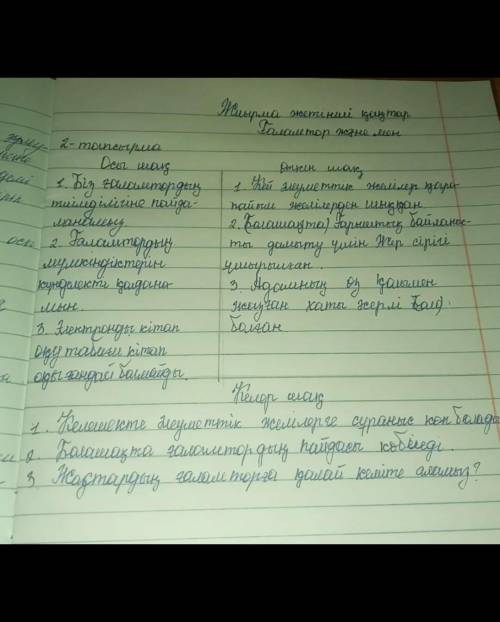 Жиырма жетінші қаңтар
Ғаламтор және мен
2-тапсырма
Осы шақ
1. Біз ғаламтордың
тиімділігіне пайда-
ланамыз.
2. Ғаламтордың
мүмкіндіктерін
күнделікті қолдана-
мын.
3. Электронды кітап
оқу табиғи кітап
оқығандай болмайды.
Өткен шақ
1. Көп әлеуметтік желілер қара-
пайым желілерден шыққан.
2. (Болашақта) Ғарыштық байланыс-
ты дамыту үшін Жер серігі
ұшырылған.
3. Адамның өз қолымен
жазған хаты әсерлі (бол)
болған
Келер шақ
1. Келешекте әлеуметтік желілерге сұраныс көп болады
2. Болашақта ғаламтордың пайдасы көбейеді.
3. Жастардың ғаламторға қалай келіте аламыз?